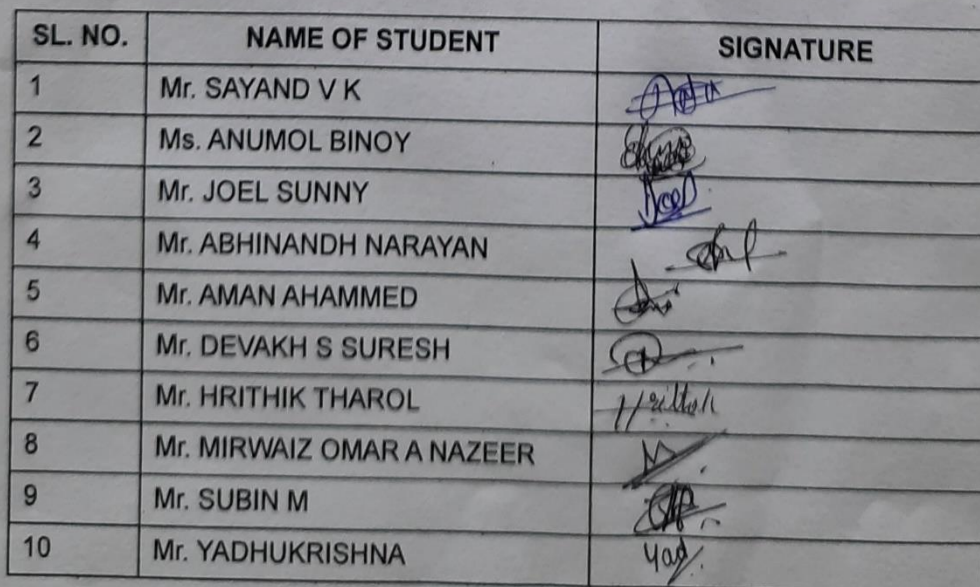 SL. NO. NAME OF STUDENT SIGNATURE
1 Mr. SAYAND V K
2 Ms. ANUMOL BINOY
3 Mr. JOEL SUNNY Joel
4 Mr. ABHINANDH NARAYAN
5 Mr. AMAN AHAMMED
6 Mr. DEVAKH S SURESH
7 Mr. HRITHIK THAROL Hrithik
8 Mr. MIRWAIZ OMAR A NAZEER
9 Mr. SUBIN M
10 Mr. YADHUKRISHNA Yad